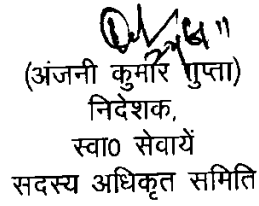 (अंजनी कुमार गुप्ता)
निदेशक,
स्वा0 सेवायें
सदस्य अधिकृत समिति